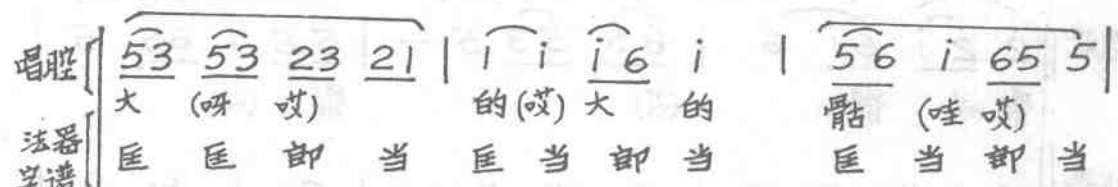 唱腔 53 53 23 21 | 1 i i6 i | 56 i 65 5 |
大 (呀 哎) 的 (哎) 大 的 骷 (哇 哎)
法器字谱 匡 匡 郎 当 匡 当 郎 当 匡 当 郎 当